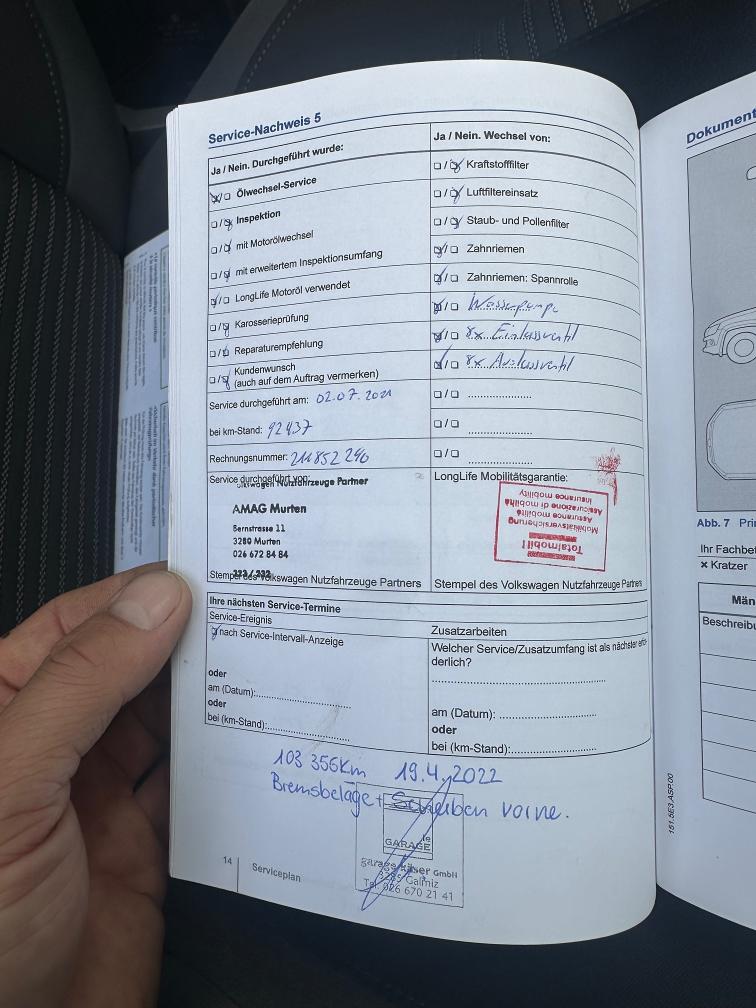 Service-Nachweis 5
Ja / Nein. Durchgeführt wurde:
Ölwechsel-Service
Inspektion
mit Motorölwechsel
mit erweitertem Inspektionsumfang
LongLife Motoröl verwendet
Karosserieprüfung
Reparaturempfehlung
Kundenwunsch
(auch auf dem Auftrag vermerken)
Service durchgeführt am: 02.07.2021
bei km-Stand: 92437
Rechnungsnummer: 211852290
Service durchgeführt von:
Nutzfahrzeuge Partner
AMAG Murten
Bernstrasse 11
3280 Murten
026 672 84 84
Stempel des Volkswagen Nutzfahrzeuge Partners
Ja / Nein. Wechsel von:
Kraftstofffilter
Luftfiltereinsatz
Staub- und Pollenfilter
Zahnriemen
Zahnriemen: Spannrolle
Wasserpumpe
8x Einlassventil
8x Auslassventil
LongLife Mobilitätsgarantie:
Totalmobil!
Mobilitätsversicherung
Assurance mobilité
Assicurazione di mobilità
Insurance mobility
Stempel des Volkswagen Nutzfahrzeuge Partners
Ihre nächsten Service-Termine
Service-Ereignis
nach Service-Intervall-Anzeige
oder
am (Datum):
oder
bei (km-Stand):
Zusatzarbeiten
Welcher Service/Zusatzumfang ist als nächster erfor-
derlich?
am (Datum):
oder
bei (km-Stand):
103 356km 19.4.2022
Bremsbeläge + Scheiben vorne.
le
GARAGE
garage käser GmbH
3285 Galmiz
Tel. 026 670 21 41
14
Serviceplan
151.5E3.ASP.00
Dokument
Abb. 7 Prin
Ihr Fachbe
× Kratzer
Män
Beschreibu